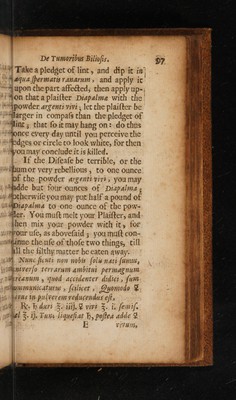 De Tumoribus Biliosis. 97
Take a pledget of lint, and dip it in
aqua spermatis ranarum, and apply it
upon the part affected, then apply up-
on that a plaister Diapalma with the
powder argenti vivi; let the plaister be
larger in compass than the pledget of
lint, that so it may hang on: do thus
once every day until you perceive the
edges or circle to look white, for then
you may conclude it is killed.
If the Disease be terrible, or the
humor very rebellious, to one ounce
of the powder argenti vivi, you may
adde but four ounces of Diapalma;
otherwise you may put half a pound of
Diapalma to one ounce of the pow-
der. You must melt your Plaister, and
then mix your powder with it, for
your use, as abovesaid; you must con-
tinue the use of those two things, till
all the filthy matter be eaten away.
Nunc sicuti non nobis solis nati sumus,
universo terrarum ambitui permagnum
arcanum, quod accidenter didici, sum
communicaturus, scilicet, Quomodo ☿
vivus in pulverem reducendus est.
℞. ♄ duri ℥. iiij. ☿ vivi ℥. i. semis.
vel ℥. ij. Tunc liquefias ♄, postea adde ☿
E vivum,